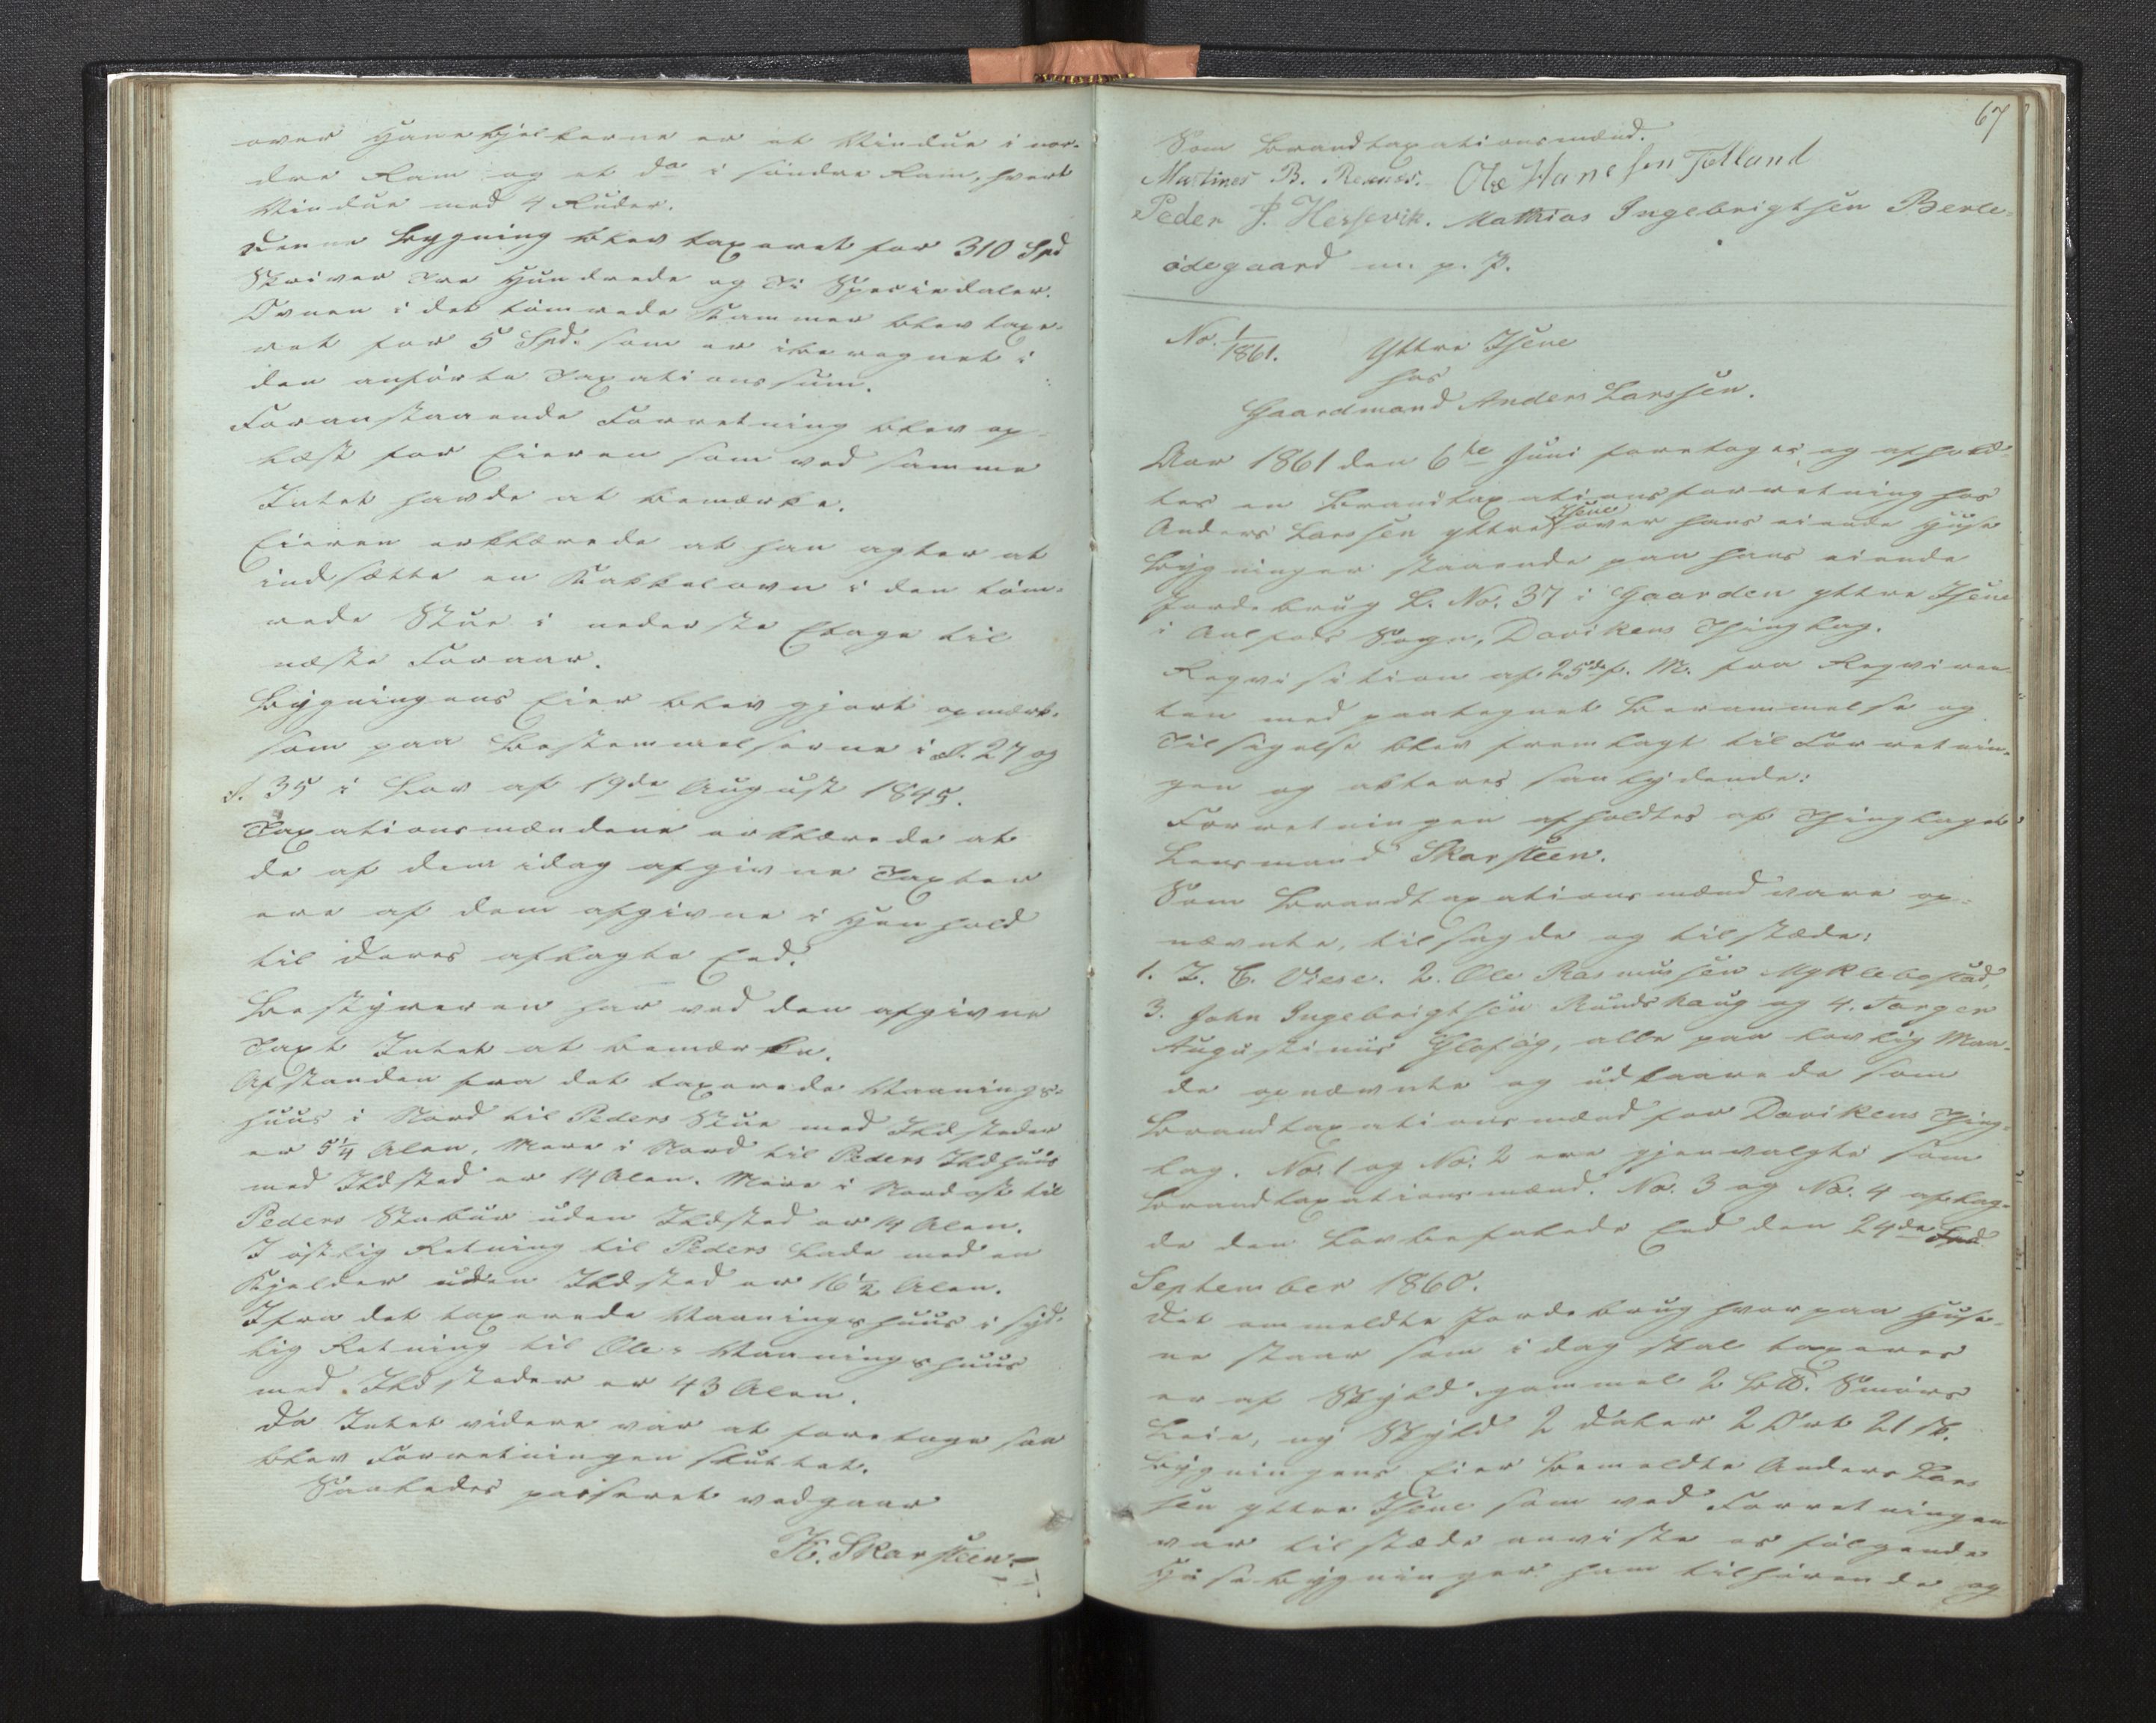 over Hanebjelkerne er et Vindue i nor-
dre Ram og et do i søndre Ram, hvert
Vindue med 4 Ruder.
Denne Bygning blev taxeret for 310 Spd
Skriver Tre Hundrede og Ti Speciedaler.
Ovnen i det tømrede Kammer blev taxe-
ret for 5 Spd. som er iberegnet i
den anførte Taxationssum.
Foranstaaende Forretning blev op-
læst for Eieren som ved samme
Intet havde at bemærke.
Eieren erklærede at han agter at
indsætte en Kakkelovn i den tøm-
rede Stue i nederste Etage til
næste Foraar.
Bygningens Eier blev gjort opmærk-
som paa Bestemmelserne i §. 27 og
§. 35 i Lov af 19de August 1845.
Taxationsmændene erklærede at
de af dem idag afgivne Taxter
ere af dem afgivne i Henhold
til deres aflagte Eed.
Bestyreren har ved den afgivne
Taxt Intet at bemærke.
Afstanden fra det taxerede Vaanings-
huus i Nord til Peders Stue med Ildsteder
er 5¼ Alen. Mere i Nord til Peders Ildhuus
med Ildsted er 14 Alen. Mere i Nordost til
Peders Stabur uden Ildsted er 14 Alen.
I østlig Retning til Peders Lade med en
Kjelder uden Ildsted er 16½ Alen.
Ifra det taxerede Vaaningshuus i syd-
lig Retning til Oles Vaaningshuus
med Ildsteder er 43 Alen.
Da Intet videre var at foretage saa
blev Forretningen sluttet.
Saaledes passeret vedgaar
K. Skarsteen.
67
Som Brandtaxationsmænd.
Martines B. Ole Hansen Totland
Peder J. Hessevik. Mathias Ingebrigtsen Berle-
ødegaard m. p. P.
No. 1/1861. Yttre Isene
hos
Gaardmand Anders Larssen.
Aar 1861 den 6te Juni foretoges og afhold-
tes en Brandtaxationsforretning hos
Anders Larssen yttre Isene over hans eiende Huse
Bygninger staaende paa hans eiende
Jordebrug L. No. 37 i Gaarden yttre Isene
i Aalfods Sogn, Davikens Thinglag.
Reqvisition af 25de f. M. fra Reqviren-
ten med paategnet Berammelse og
Tilsigelse blev fremlagt til Forretnin-
gen og akteres saalydende:
Forretningen afholdtes af Thinglagets
Lensmand Skarsteen.
Som Brandtaxationsmænd vare op-
nævnte, tilsagde og tilstæde:
1. Z. C. Wiese. 2. Ole Rasmussen Myklebostad,
3. John Ingebrigtsen Rundshaug og 4. Torger
Augustinus, alle paa lovlig Maa-
de opnævnte og udkaarede som
Brandtaxationsmænd for Davikens Thing-
lag. No. 1 og No. 2 ere gjenvalgte som
Brandtaxationsmænd. No. 3 og No. 4 aflag-
de den Lovbefalede Eed den 24de
September 1860.
Det ommeldte Jordebrug hvorpaa Huse-
ne staar som i dag skal taxeres
er af Skyld, gammel 2 Smørs
Leie, ny Skyld 2 Daler 2 Ort 21 sk.
Bygningens Eier bemeldte Anders Lars
sen yttre Isene som ved Forretningen
var tilstæde anviste os følgende
Husebygninger ham tilhørende og